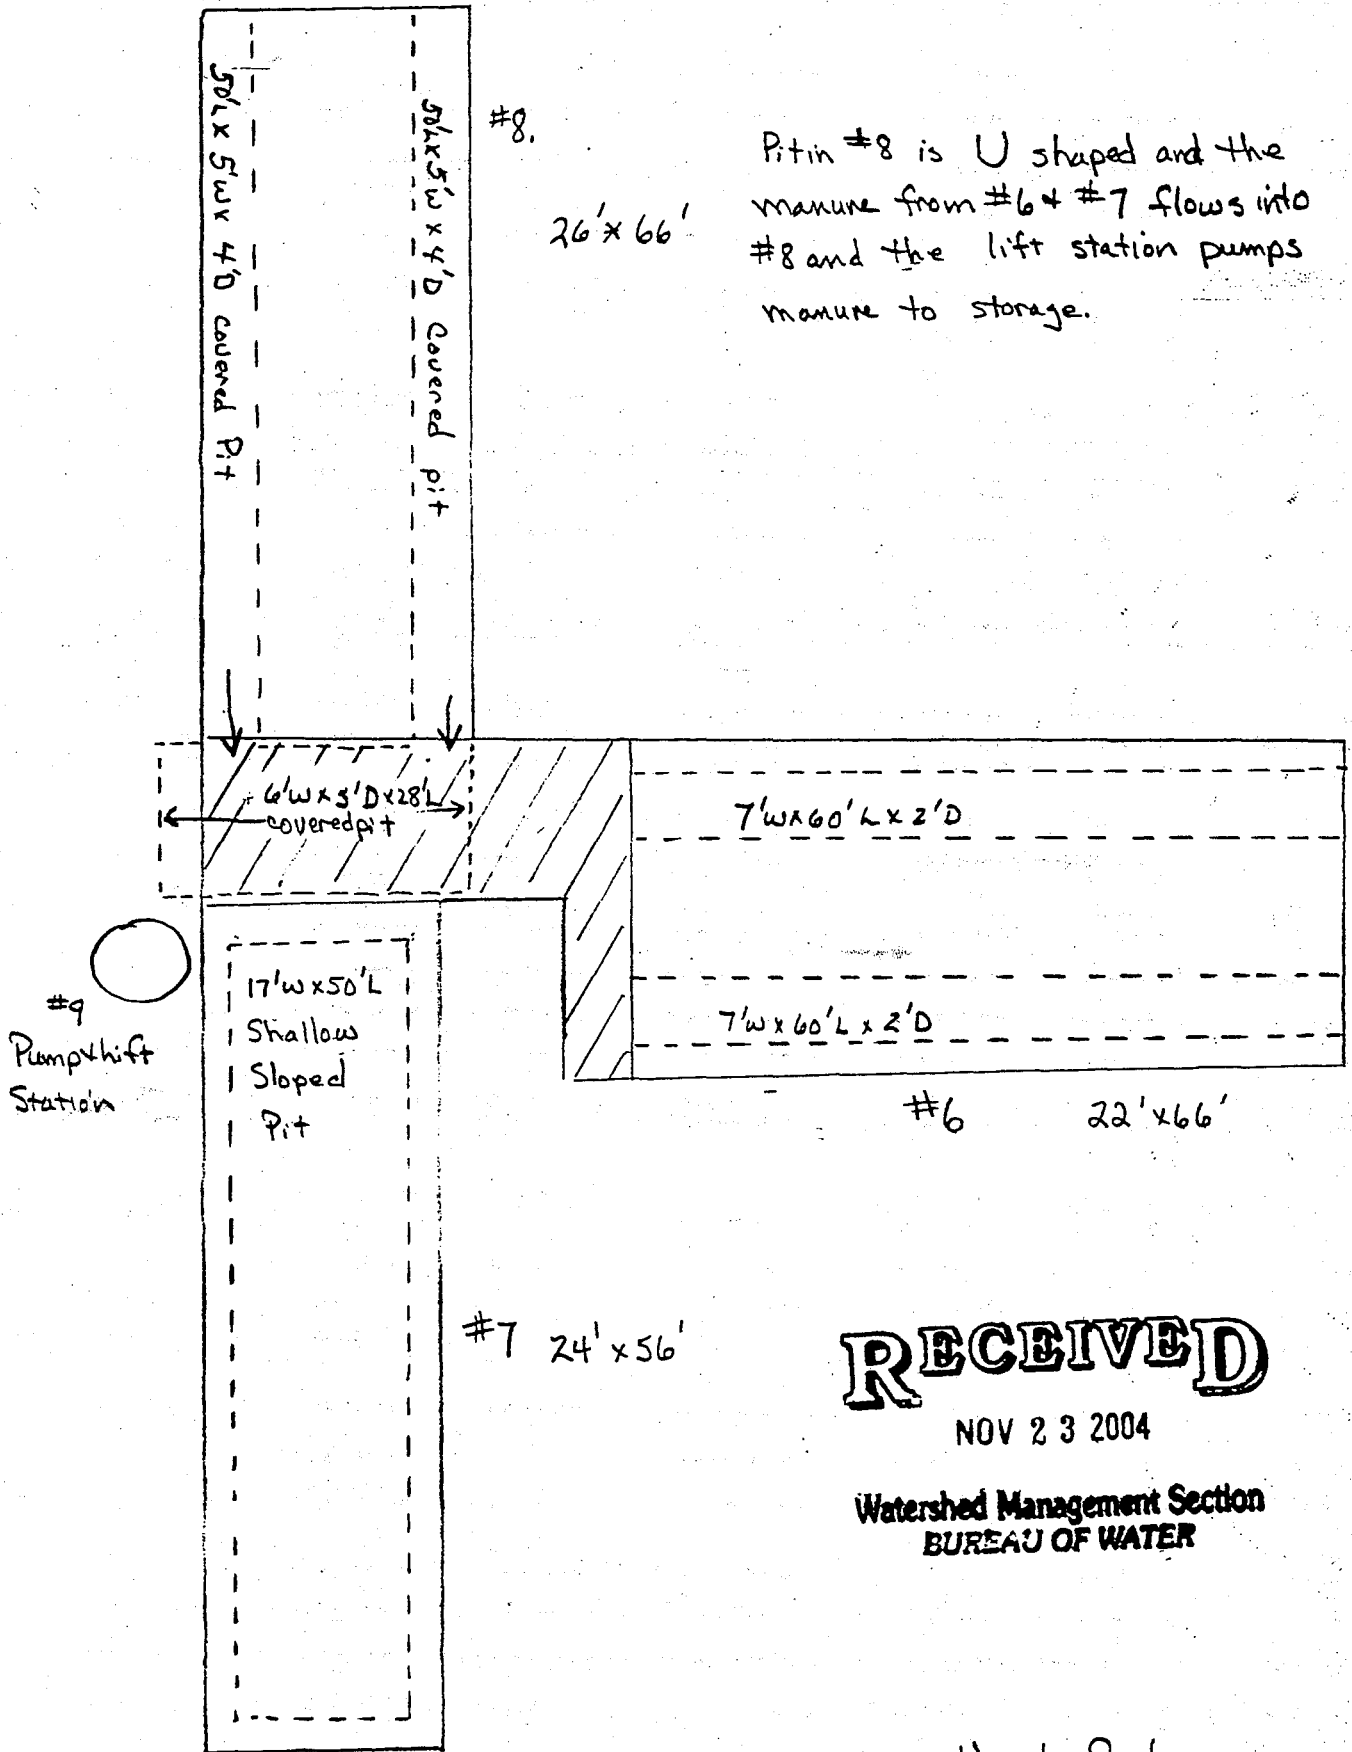 50'L x 5'W x 4'D covered Pit
50'L x 5'W x 4'D Covered pit
#8.
26' x 66'
Pit in #8 is U shaped and the
manure from #6 & #7 flows into
#8 and the lift station pumps
manure to storage.
6'W x 5'D x 28'L
covered pit
7'W x 60'L x 2'D
7'W x 60'L x 2'D
#6 22' x 66'
#9
Pump & Lift
Station
17'W x 50'L
Shallow
Sloped
Pit
#7 24' x 56'
RECEIVED
NOV 23 2004
Watershed Management Section
BUREAU OF WATER